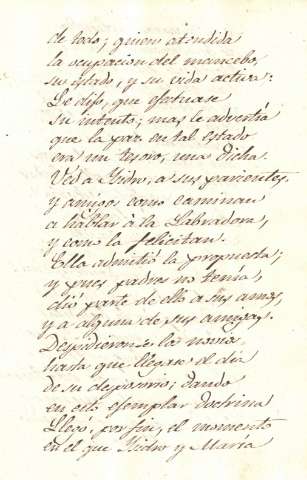 de todo; quien atendida
la ocupacion del mancebo,
su estado, y su vida activa:
Le dijo, que efectuase
su intento; mas le advertia
que la paz en tal estado
era un tesoro, una dicha.
Ved a Ysidro, a sus parientes,
y amigos como caminan
a hablar à la Labradora,
y como la felicitan.
Ella admitió la propuesta;
y pues padres no tenia,
dió parte de ello a sus amos,
y a alguna de sus amigas.
Despidieron a la novia
hasta que llegase el dia
de su desposorio; dando
en esto ejemplar doctrina
Llegó, por fin, el momento
en el que Ysidro y María